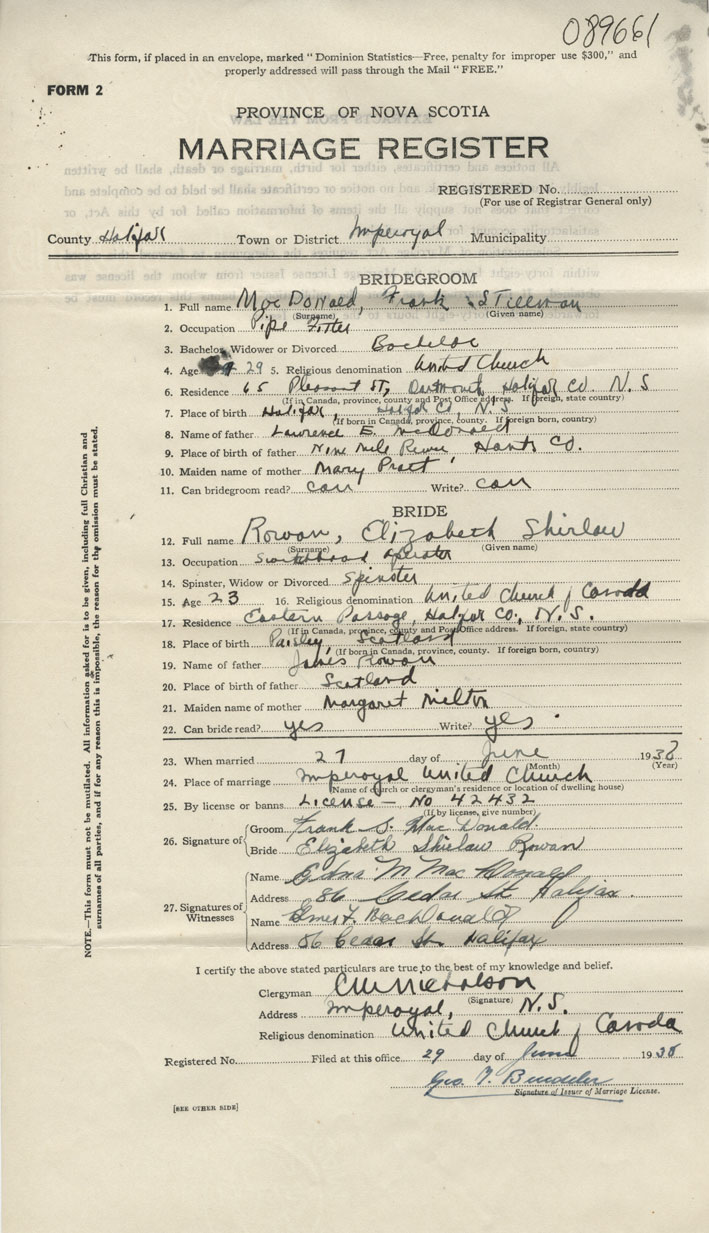 089661
This form, if placed in an envelope, marked "Dominion Statistics—Free, penalty for improper use $300," and
properly addressed will pass through the Mail "FREE."
FORM 2
PROVINCE OF NOVA SCOTIA
MARRIAGE REGISTER
REGISTERED No.
(For use of Registrar General only)
County Halifax Town or District Imperoyal Municipality
BRIDEGROOM
1. Full name MacDonald, Frank Stillman
(Surname) (Given name)
2. Occupation Pipe Fitter
3. Bachelor, Widower or Divorced Bachelor
4. Age 29 5. Religious denomination United Church
6. Residence 65 Pleasant St, Dartmouth, Halifax Co. N.S
(If in Canada, province, county and Post Office address. If foreign, state country)
7. Place of birth Halifax, Halifax Co, N.S
(If born in Canada, province, county. If foreign born, country)
8. Name of father Lawrence E. McDonald
9. Place of birth of father Nine Mile River, Hants Co.
10. Maiden name of mother Mary Pratt
11. Can bridegroom read? can Write? can
BRIDE
12. Full name Rowan, Elizabeth Shirlaw
(Surname) (Given name)
13. Occupation Switchboard operator
14. Spinster, Widow or Divorced Spinster
15. Age 23 16. Religious denomination United Church of Canada
17. Residence Eastern Passage, Halifax Co., N.S.
(If in Canada, province, county and Post Office address. If foreign, state country)
18. Place of birth Paisley, Scotland
(If born in Canada, province, county. If foreign born, country)
19. Name of father James Rowan
20. Place of birth of father Scotland
21. Maiden name of mother Margaret Milton
22. Can bride read? yes Write? yes
23. When married 27 day of June 1938
(Month) (Year)
24. Place of marriage Imperoyal United Church
(Name of church or clergyman's residence or location of dwelling house)
25. By license or banns License — No 42432
(If by license, give number)
26. Signature of
Groom Frank S. MacDonald.
Bride Elizabeth Shirlaw Rowan
27. Signatures of Witnesses
Name Edna M MacDonald
Address 86 Cedar St. Halifax.
Name MacDonald
Address 86 Cedar St. Halifax
I certify the above stated particulars are true to the best of my knowledge and belief.
Clergyman CM Nicholson
(Signature)
Address Imperoyal, N.S.
Religious denomination United Church of Canada
Registered No. Filed at this office 29 day of June 1938
Geo. T.
Signature of Issuer of Marriage License.
[SEE OTHER SIDE]
NOTE.—This form must not be mutilated. All information asked for is to be given, including full Christian and
surnames of all parties, and if for any reason this is impossible, the reason for the omission must be stated.